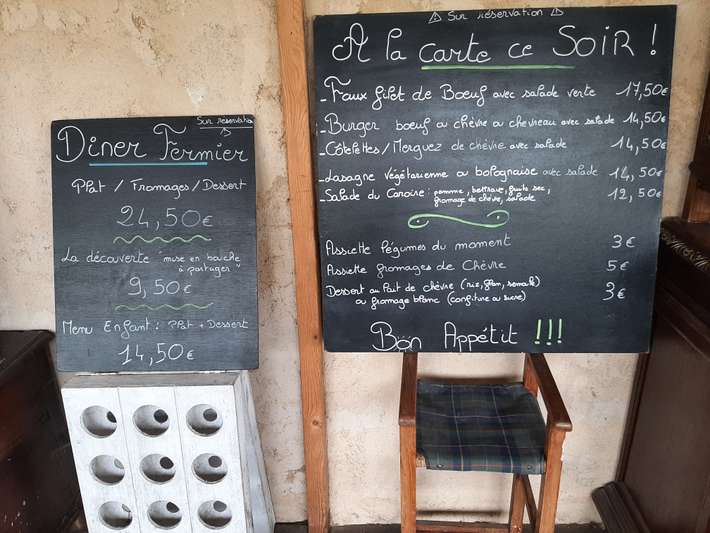 Sur réservation
Dîner Fermier
Plat / Fromages / Dessert
24,50€
La découverte mise en bouche
à partager
9,50€
Menu Enfant : Plat + Dessert
14,50€
⚠ Sur réservation ⚠
A la carte ce SOIR !
- Faux filet de Bœuf avec salade verte 17,50€
- Burger boeuf ou chèvre ou chevreau avec salade 14,50€
- Côtelettes / Merguez de chèvre avec salade 14,50€
- Lasagne végétarienne ou bolognaise avec salade 14,50€
- Salade du Caroire : pomme, betterave, fruits sec,
fromage de chèvre, salade 12,50€
Assiette légumes du moment 3€
Assiette fromages de Chèvre 5€
Dessert au lait de chèvre (riz, flan, semoule)
ou fromage blanc (confiture ou sucre) 3€
Bon Appétit !!!